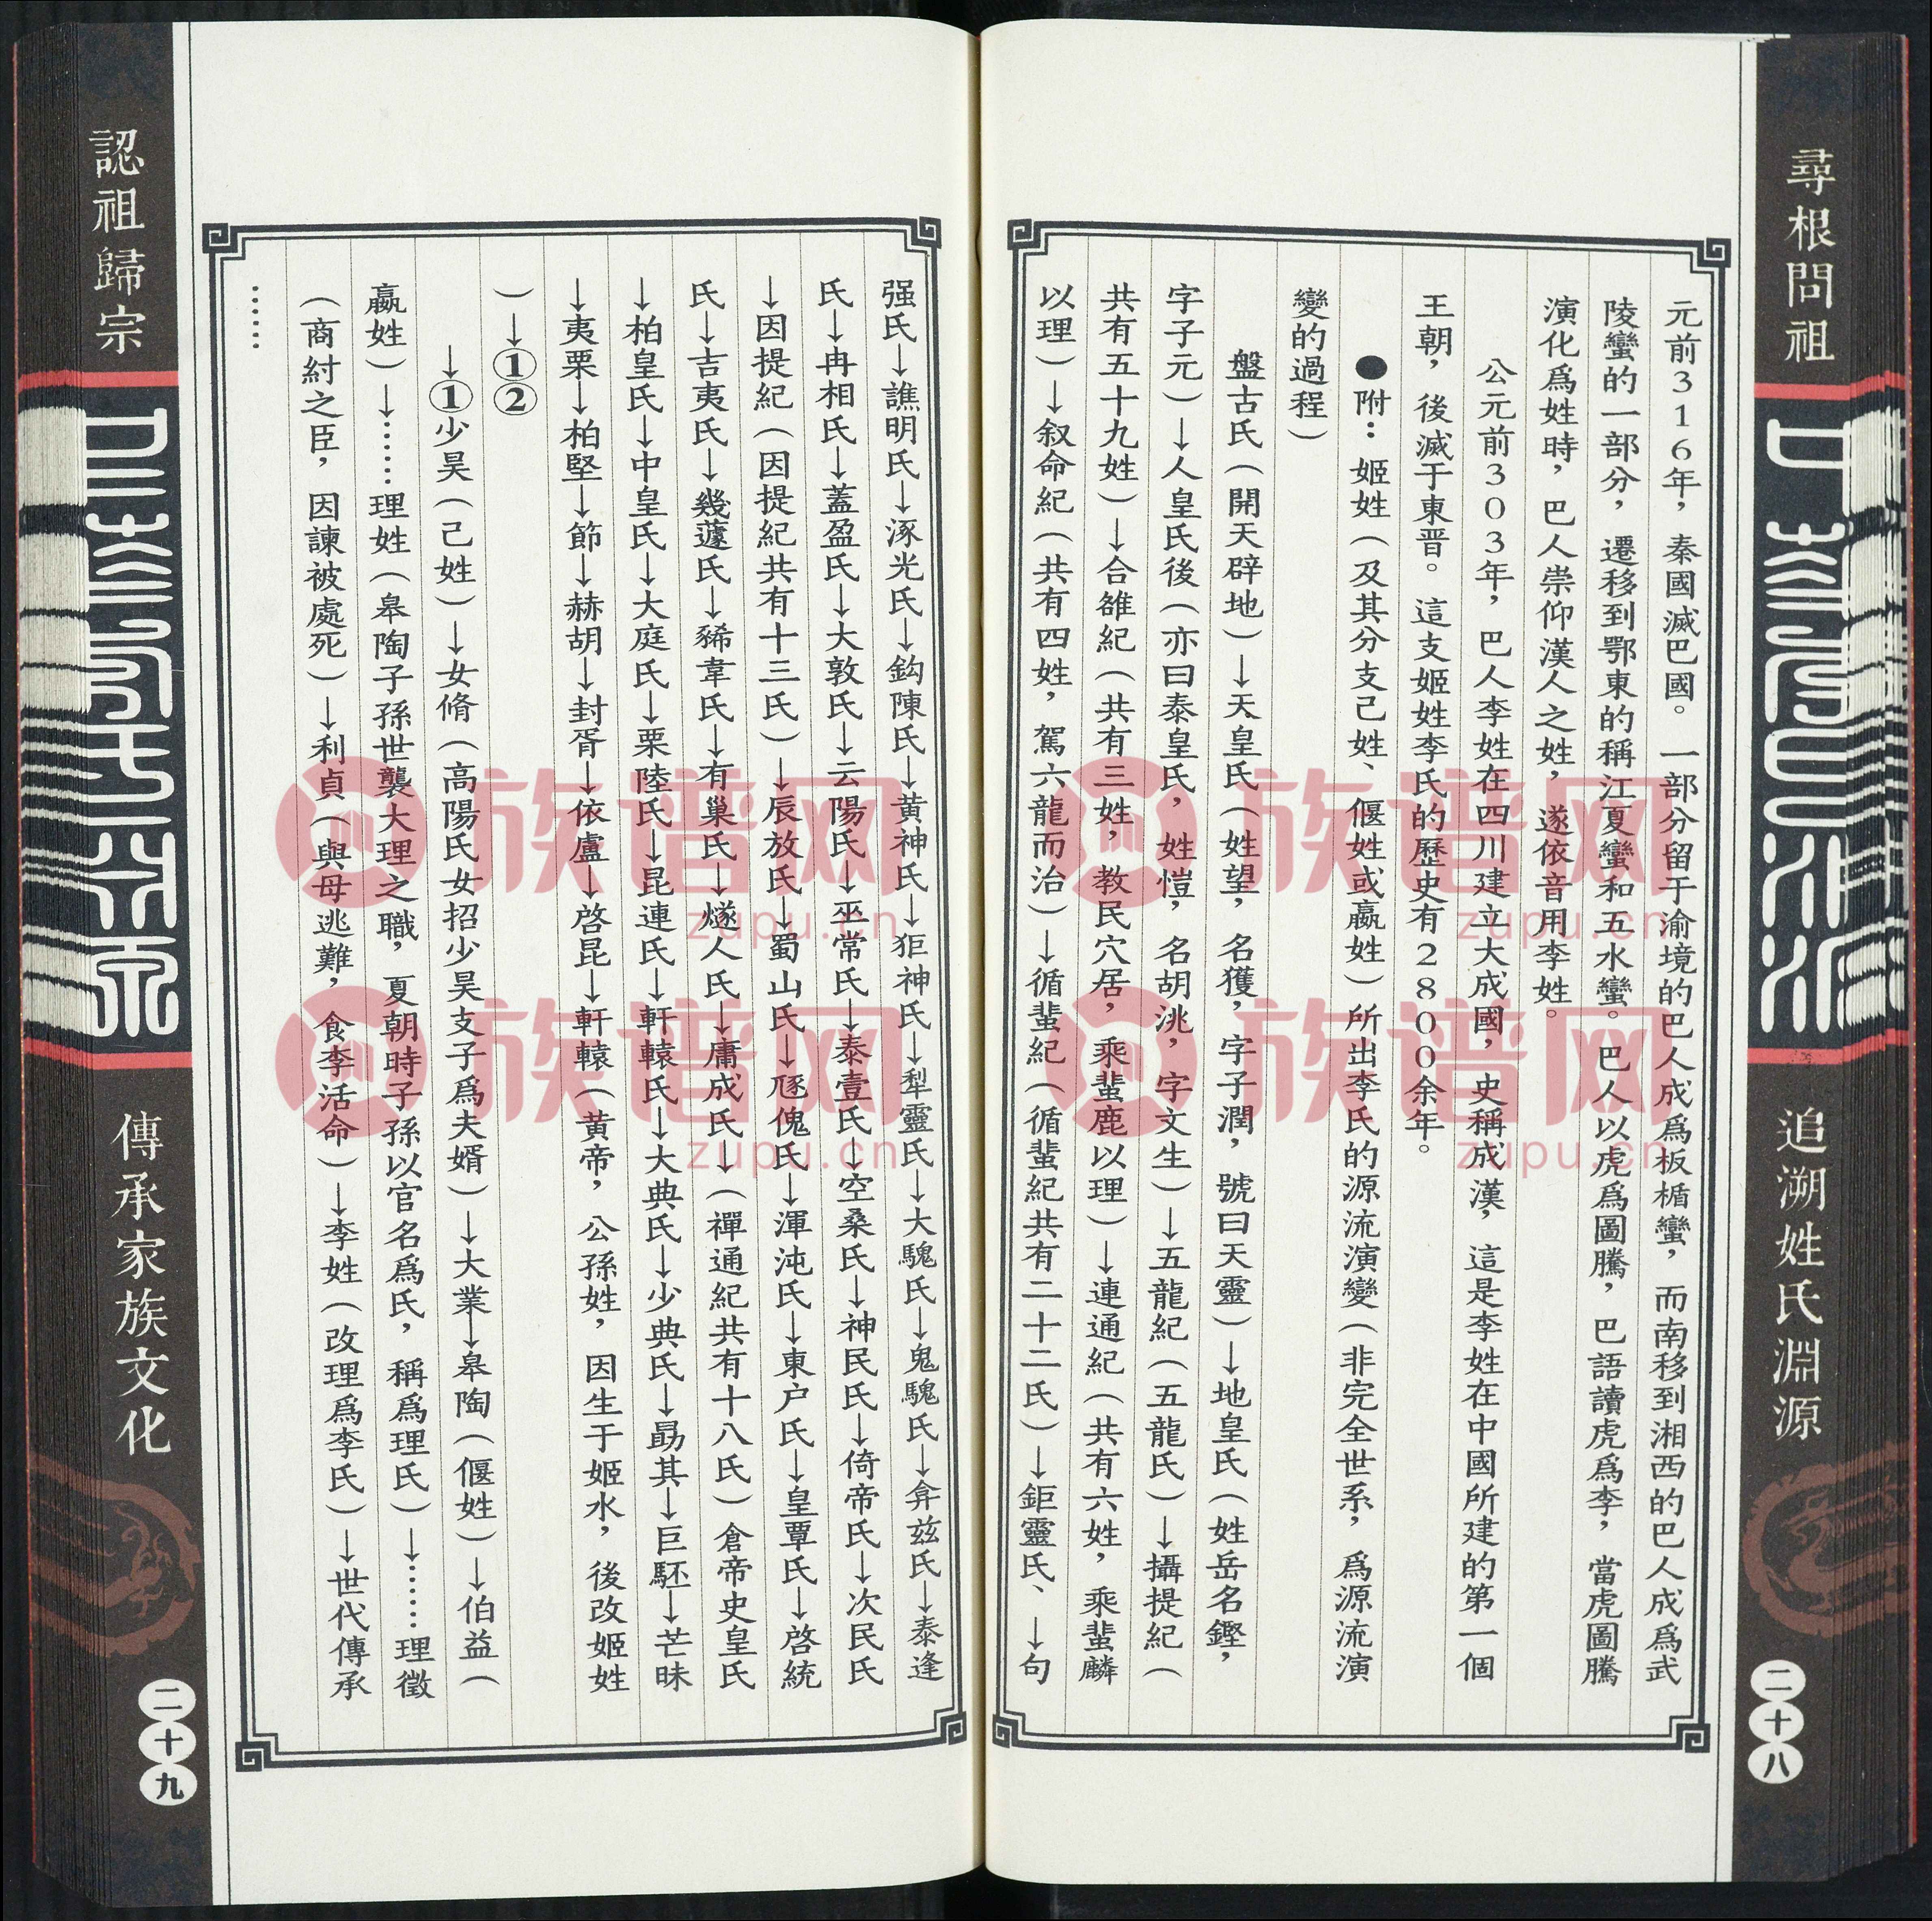 尋根問祖
追溯姓氏淵源
二十八
元前316年，秦國滅巴國。一部分留于渝境的巴人成爲板楯蠻，而南移到湘西的巴人成爲武
陵蠻的一部分，遷移到鄂東的稱江夏蠻和五水蠻。巴人以虎爲圖騰，巴語讀虎爲李，當虎圖騰
演化爲姓時，巴人崇仰漢人之姓，遂依音用李姓。
公元前303年，巴人李姓在四川建立大成國，史稱成漢，這是李姓在中國所建的第一個
王朝，後滅于東晋。這支姬姓李氏的歷史有2800余年。
●附：姬姓（及其分支己姓、偃姓或嬴姓）所出李氏的源流演變（非完全世系，爲源流演
變的過程）
盤古氏（開天辟地）→天皇氏（姓望，名獲，字子潤，號曰天靈）→地皇氏（姓岳名鏗，
字子元）→人皇氏後（亦曰泰皇氏，姓愷，名胡洮，字文生）→五龍紀（五龍氏）→攝提紀（
共有五十九姓）→合雒紀（共有三姓，教民穴居，乘蜚鹿以理）→連通紀（共有六姓，乘蜚麟
以理）→叙命紀（共有四姓，駕六龍而治）→循蜚紀（循蜚紀共有二十二氏）→鉅靈氏、→句
强氏→譙明氏→涿光氏→鈎陳氏→黄神氏→犯神氏→犁靈氏→大騩氏→鬼騩氏→弇兹氏→泰逢
氏→冉相氏→蓋盈氏→大敦氏→云陽氏→巫常氏→泰壹氏→空桑氏→神民氏→倚帝氏→次民氏
→因提紀（因提紀共有十三氏）→辰放氏→蜀山氏→豗傀氏→渾沌氏→東户氏→皇覃氏→啓統
氏→吉夷氏→幾蘧氏→豨韋氏→有巢氏→燧人氏→庸成氏→（禪通紀共有十八氏）倉帝史皇氏
→柏皇氏→中皇氏→大庭氏→栗陸氏→昆連氏→軒轅氏→大典氏→少典氏→勗其→巨駓→芒昧
→夷栗→柏堅→節→赫胡→封胥→依盧→啓昆→軒轅（黄帝，公孫姓，因生于姬水，後改姬姓
）→①②
→①少昊（己姓）→女脩（高陽氏女招少昊支子爲夫婿）→大業→皋陶（偃姓）→伯益（
嬴姓）→……理姓（皋陶子孫世襲大理之職，夏朝時子孫以官名爲氏，稱爲理氏）→……理徵
（商紂之臣，因諫被處死）→利貞（與母逃難，食李活命）→李姓（改理爲李氏）→世代傳承
……
認祖歸宗
傳承家族文化
二十九
族谱网
zupu.cn
族谱网
zupu.cn
族谱网
zupu.cn
族谱网
zupu.cn